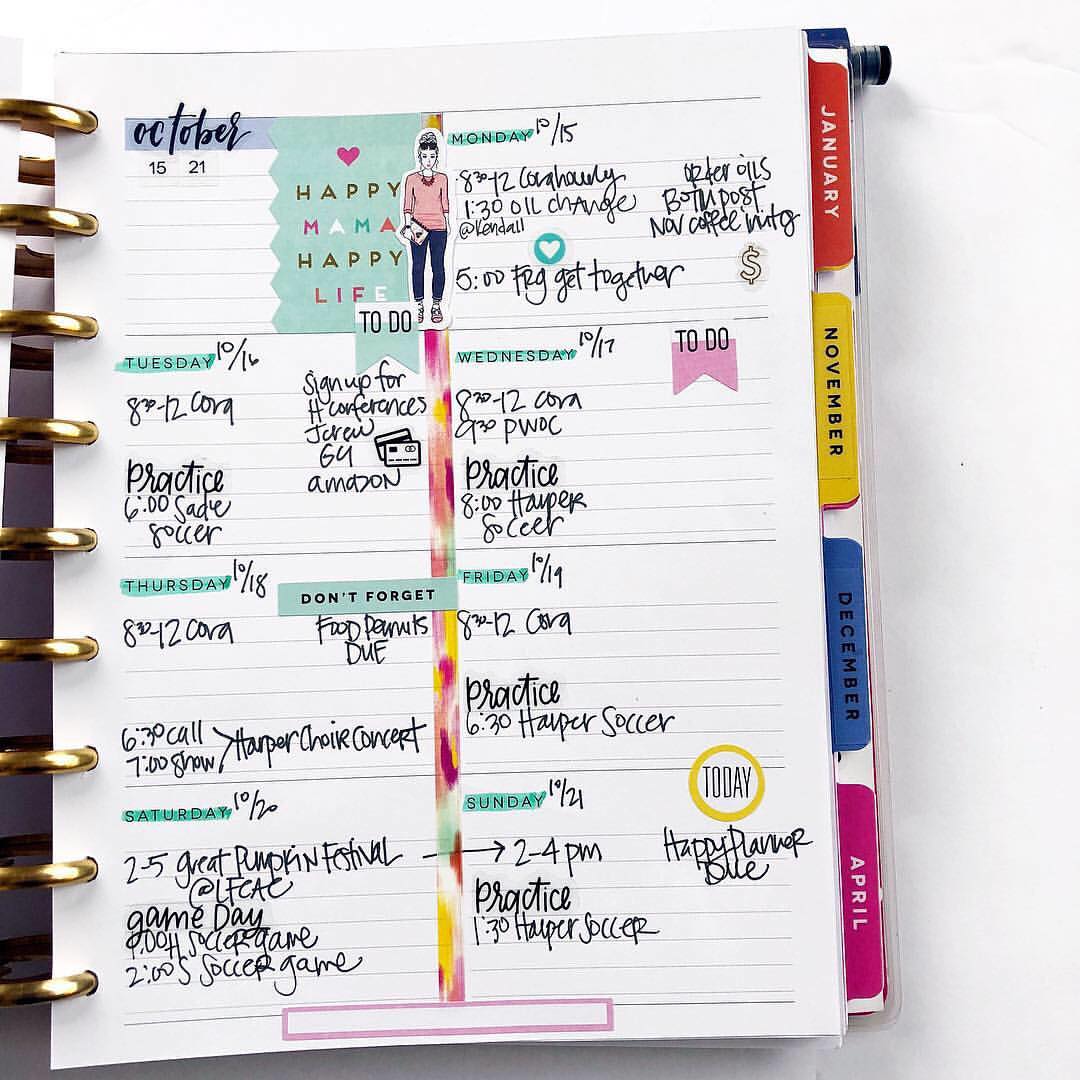 october
15 21
HAPPY
MAMA
HAPPY
LIFE
MONDAY 10/15
8:30-12 Cora hourly
1:30 oil change
@Kendall
5:00 Frg get together
order oils
BOTM post
Nov coffee invites
$
TUESDAY 10/16
8:30-12 Cora
Practice
6:00 Sadie
Soccer
TO DO
Sign up for
H conferences
Jcrew
GY
amazon
WEDNESDAY 10/17
8:30-12 Cora
9:30 PWOC
Practice
8:00 Harper
Soccer
TO DO
THURSDAY 10/18
8:30-12 Cora
6:30 call
7:00 show
Harper Choir Concert
DON'T FORGET
Food Peanuts
DUE
FRIDAY 10/19
8:30-12 Cora
Practice
6:30 Harper Soccer
SATURDAY 10/20
2-5 great Pumpkin Festival
@LFCAC
game Day
9:00 H Soccer game
2:00 S Soccer game
SUNDAY 10/21
2-4 pm
Practice
1:30 Harper Soccer
TODAY
Happy Planner
Due
JANUARY
NOVEMBER
DECEMBER
APRIL